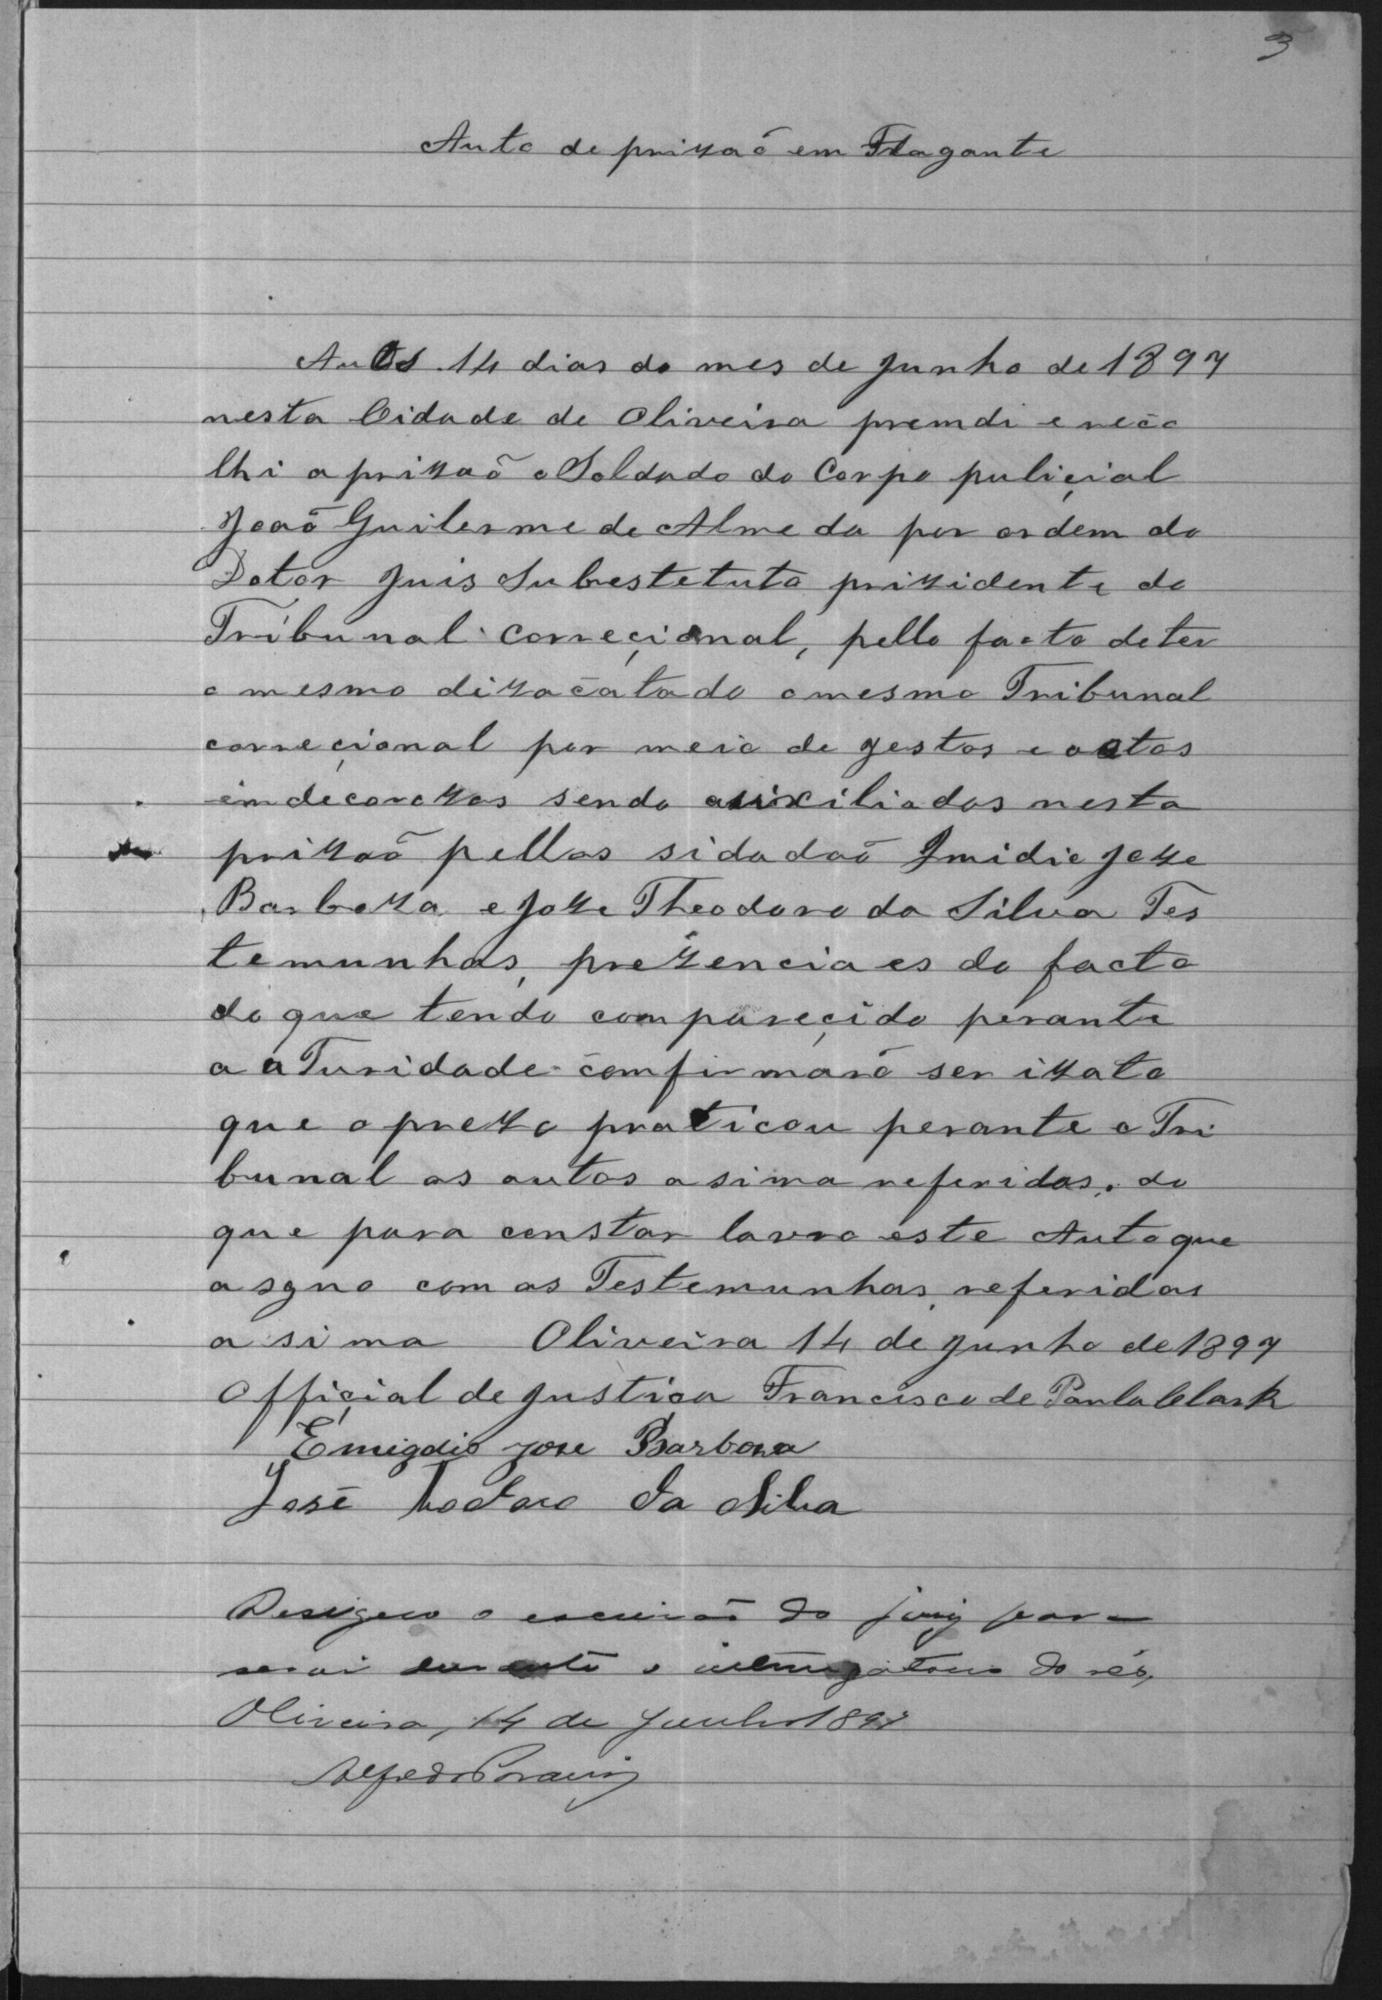 3
Auto de prizaõ em Flagante
Autos 14 dias do mes de Junho de 1897
nesta Cidade de Oliveira premdi e reco
lhi a prizaõ o Soldado do Corpo puliçial
Joaõ Guilerme de Almeda por ordem do
Dotor Juis Subestetuto prizidente do
Tribunal correçional, pello facto de ter
o mesmo dizacatado o mesmo Tribunal
correçional por meio de gestos e actos
imdecorozos sendo auixiliados nesta
prizaõ pellos sidadaõ Imidio Joze
Barboza e Joze Theodoro da Silva Tes
temunhas, prezenciaes do facto
do que tendo compareçido perante
a aTuridade comfirmaró ser izato
que o prezo praticou perante o Tri
bunal os autos asima referidos. do
que para constar lavro este Auto que
asgno com as Testemunhas, referidas
asima Oliveira 14 de Junho de 1897
Offiçial de Justiça Francisco de Paula Clark
Emigdio Jose Barbosa
José Todoro da Silva
Designo o escrivão do jury para
servir durante o interrogatorio do réo,
Oliveira, 14 de Junho 1897
Alfredo